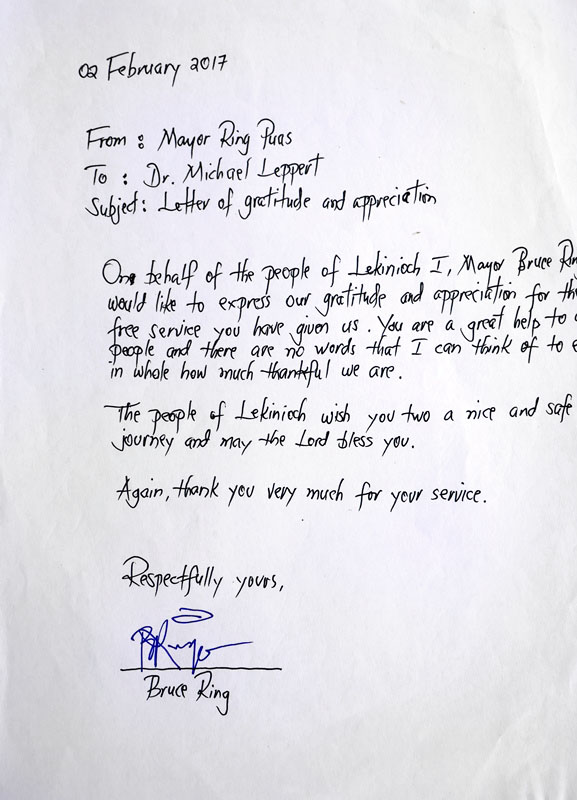 02 February 2017
From : Mayor Ring Puas
To : Dr. Michael Leppert
Subject: Letter of gratitude and appreciation
One behalf of the people of Lekinioch I, Mayor Bruce Rin
would like to express our gratitude and appreciation for th
free service you have given us. You are a great help to
people and there are no words that I can think of to e
in whole how much thankful we are.
The people of Lekinioch wish you two a nice and safe
journey and may the Lord bless you.
Again, thank you very much for your service.
Respectfully yours,
Bruce Ring